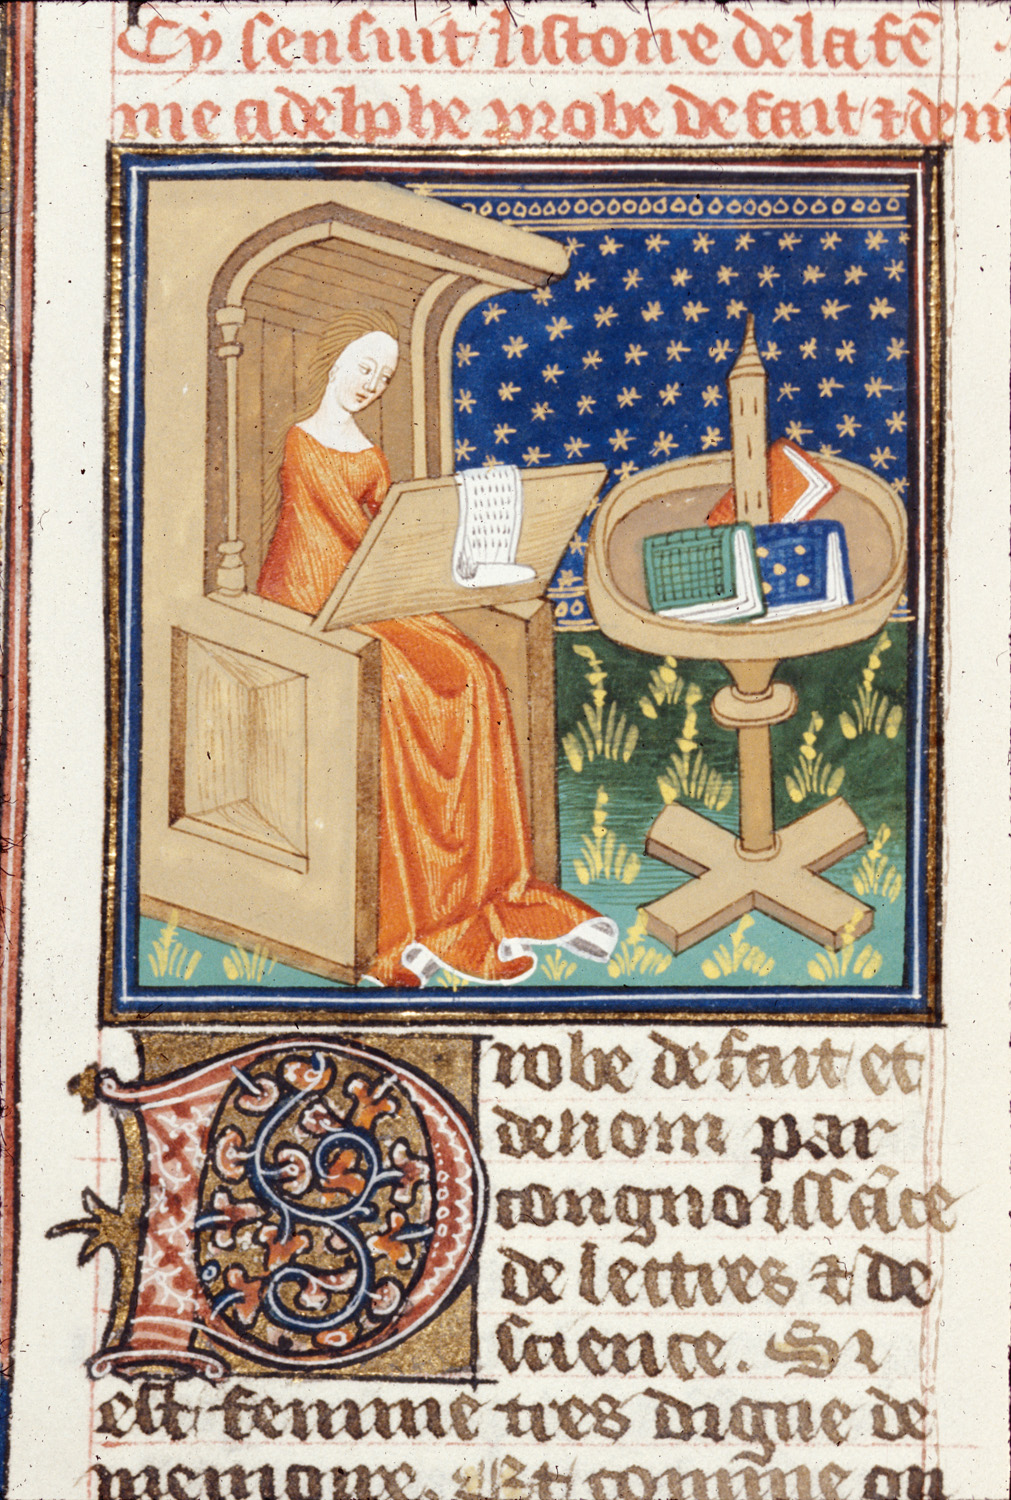 Cy sensuit listoire de la fẽ
me adelphe probe de fait ⁊ de
Probe de fait et
de nom par
congnoissãce
de lettres ⁊ de
science. Si
est femme tres digne de
memoire. Et comme on